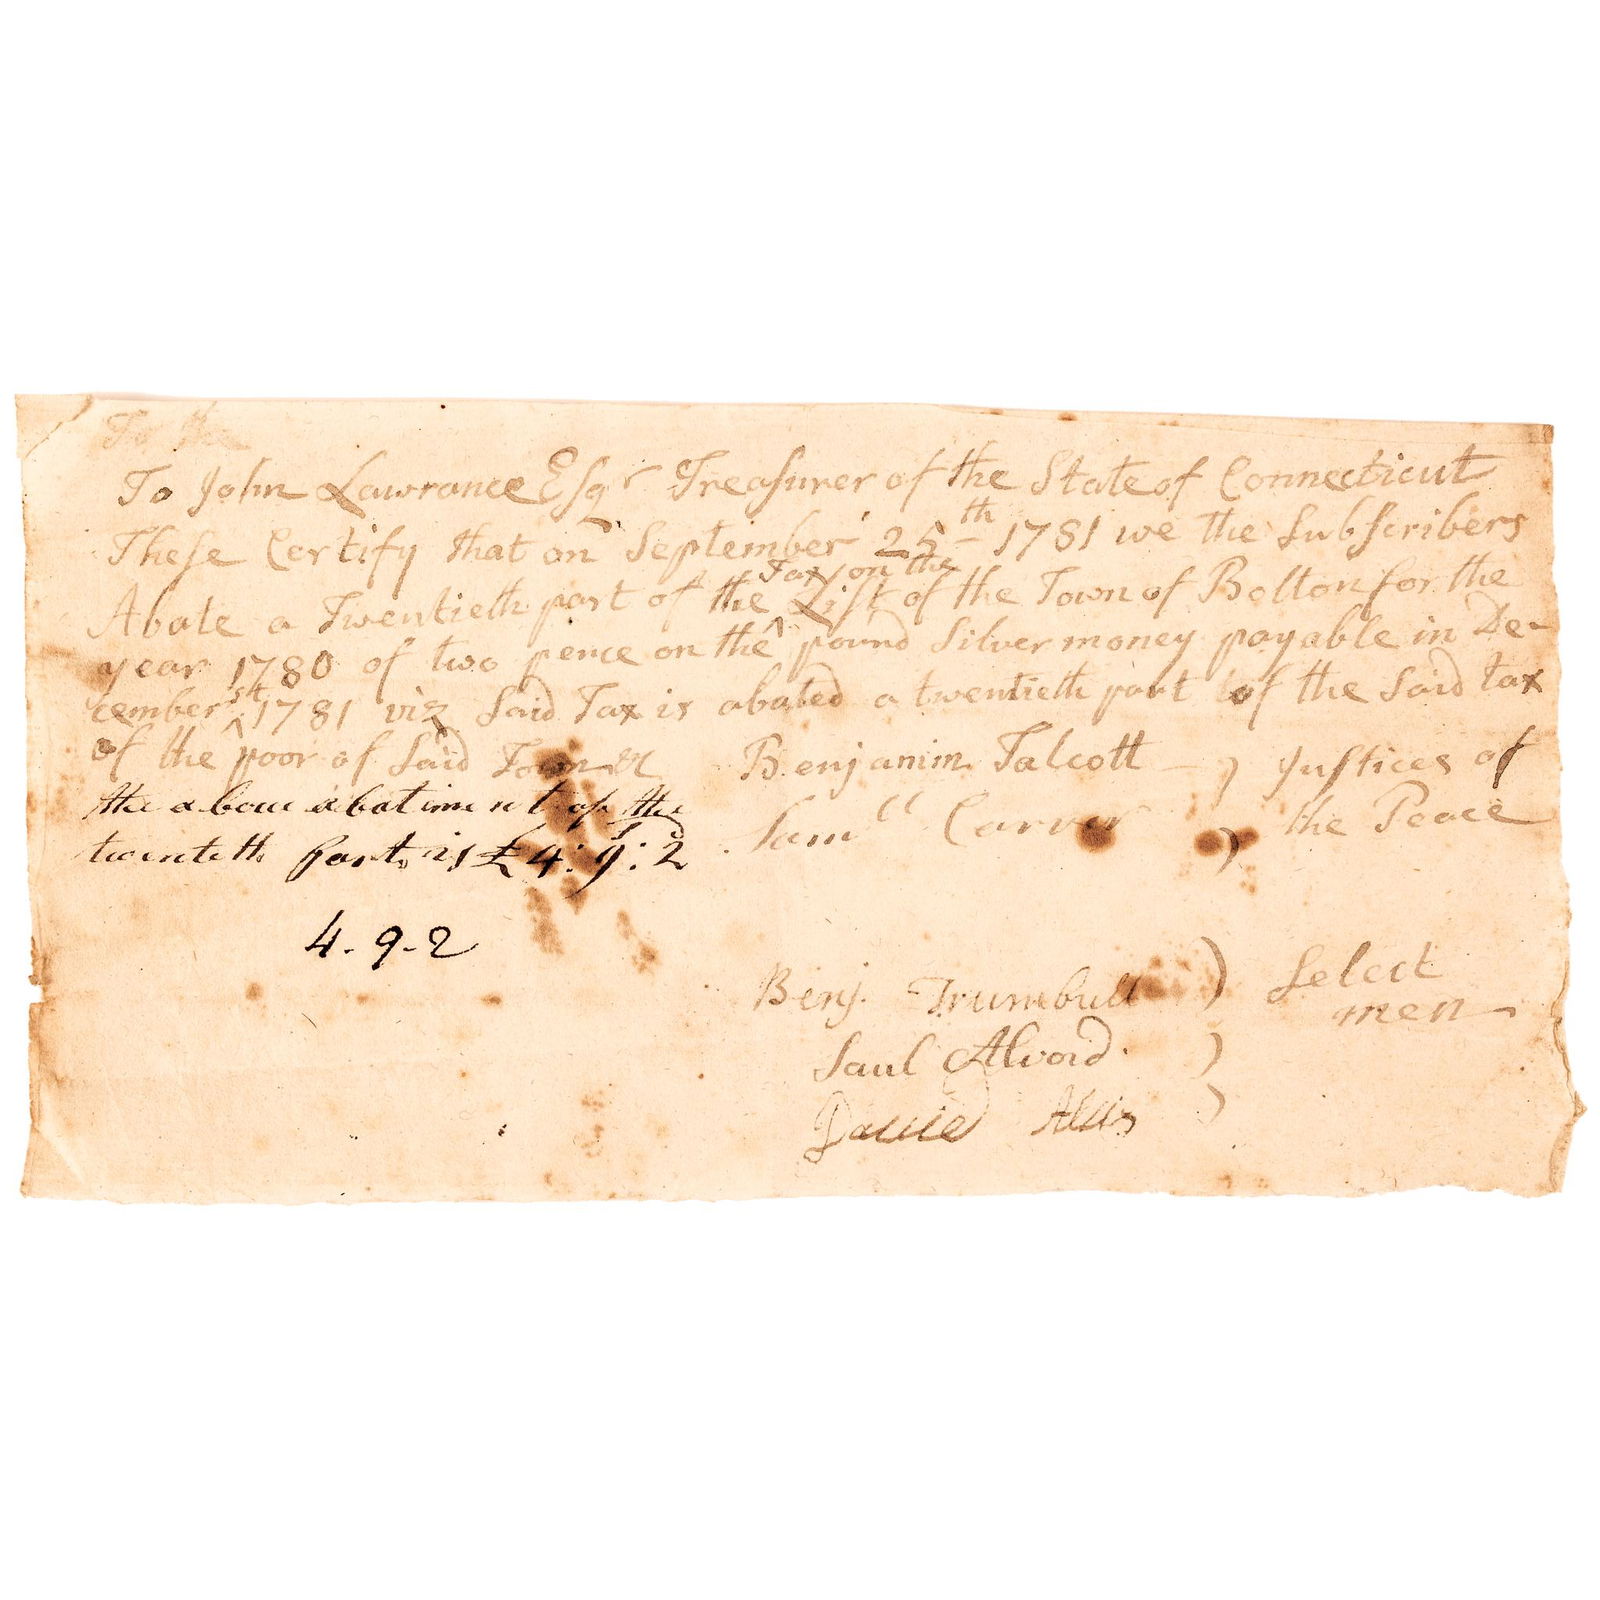 To the
To John Lawrance Esqr Treasurer of the State of Connecticut
These Certify that on September 25th 1781 we the Subscribers
Tax on the
Abate a Twentieth part of the List of the Town of Bolton for the
year 1780 of two pence on the ^ pound Silver money payable in De-
cember 1st 1781 viz Said Tax is abated a twentieth part of the Said tax
of the ^ poor of Said Town &
the aboue abatiment of the
twenteth part is £4:9:2
4-9-2
Benjamin Talcott ) Justices of
Samll Carver ) the Peace
Benj. Trumbull ) Select
men
Saul Alvord )
Dauid Allis )